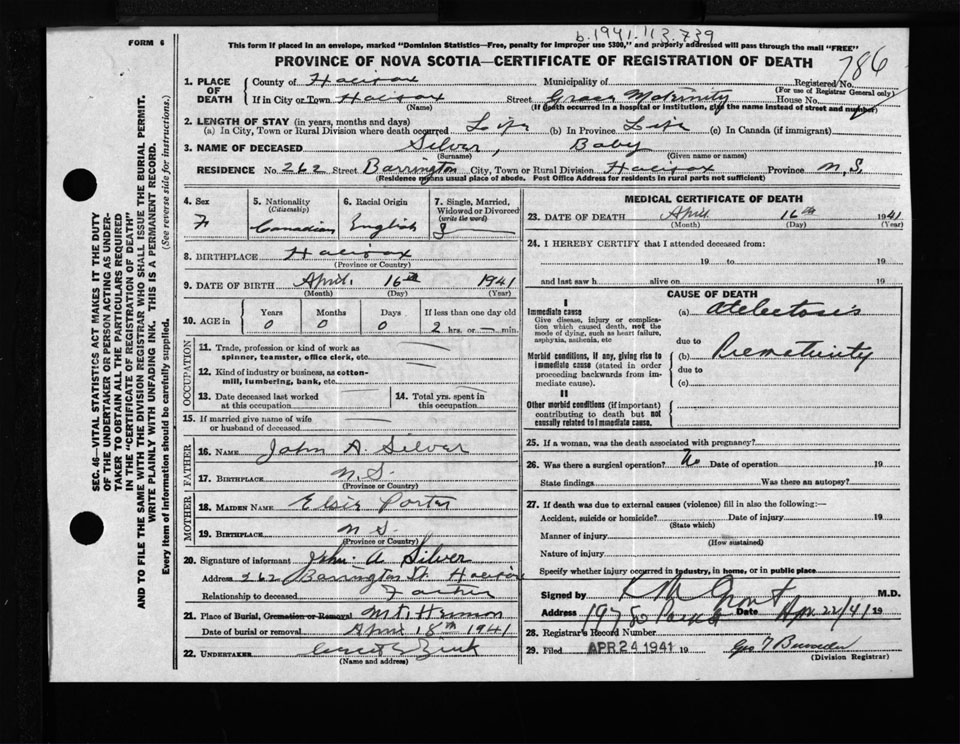 b. 1941. 113.739
FORM 6
This form if placed in an envelope, marked "Dominion Statistics—Free, penalty for improper use $300," and properly addressed will pass through the mail "FREE"
786
PROVINCE OF NOVA SCOTIA—CERTIFICATE OF REGISTRATION OF DEATH
1. PLACE OF DEATH
County of Halifax Municipality of Registered No.
(For use of Registrar General only)
If in City or Town Halifax Street Grace Maternity House No.
(Name) (If death occurred in a hospital or institution, give the name instead of street and number)
2. LENGTH OF STAY (in years, months and days)
(a) In City, Town or Rural Division where death occurred Life (b) In Province Life (c) In Canada (if immigrant)
3. NAME OF DECEASED Silver, Baby
(Surname) (Given name or names)
RESIDENCE No. 262 Street Barrington City, Town or Rural Division Halifax Province N.S.
(Residence means usual place of abode. Post Office Address for residents in rural parts not sufficient)
4. Sex
F
5. Nationality
(Citizenship)
Canadian
6. Racial Origin
English
7. Single, Married, Widowed or Divorced
(write the word)
S
8. BIRTHPLACE Halifax
(Province or Country)
9. DATE OF BIRTH April 16th 1941
(Month) (Day) (Year)
10. AGE in
Years Months Days If less than one day old
0 0 0 2 hrs. or — min.
OCCUPATION
11. Trade, profession or kind of work as spinner, teamster, office clerk, etc.
12. Kind of industry or business, as cotton-mill, lumbering, bank, etc.
13. Date deceased last worked at this occupation
14. Total yrs. spent in this occupation
15. If married give name of wife or husband of deceased
FATHER
16. NAME John A. Silver
17. BIRTHPLACE N.S.
(Province or Country)
MOTHER
18. MAIDEN NAME Elsie Porter
19. BIRTHPLACE N.S.
(Province or Country)
20. Signature of informant John A. Silver
Address 262 Barrington St. Halifax
Relationship to deceased Father
21. Place of Burial, Cremation or Removal Mt. Hermon
Date of burial or removal April 18th 1941
22. UNDERTAKER
(Name and address)
MEDICAL CERTIFICATE OF DEATH
23. DATE OF DEATH April 16th 1941
(Month) (Day) (Year)
24. I HEREBY CERTIFY that I attended deceased from:
19 to 19
and last saw h alive on 19
CAUSE OF DEATH
I
Immediate cause
Give disease, injury or complication which caused death, not the mode of dying, such as heart failure, asphyxia, asthenia, etc
(a) Atelectosis
due to
Morbid conditions, if any, giving rise to immediate cause (stated in order proceeding backwards from immediate cause).
(b) Prematurity
due to
(c)
II
Other morbid conditions (if important) contributing to death but not causally related to immediate cause.
25. If a woman, was the death associated with pregnancy?
26. Was there a surgical operation? No Date of operation 19
State findings Was there an autopsy?
27. If death was due to external causes (violence) fill in also the following:—
Accident, suicide or homicide? Date of injury 19
(State which)
Manner of injury
(How sustained)
Nature of injury
Specify whether injury occurred in industry, in home, or in public place
Signed by K M Grant M.D.
Address Date Apr 22/41 19
28. Registrar's Record Number
29. Filed APR 24 1941 19
(Division Registrar)
SEC. 46—VITAL STATISTICS ACT MAKES IT THE DUTY
OF THE UNDERTAKER OR PERSON ACTING AS UNDER-
TAKER TO OBTAIN ALL THE PARTICULARS REQUIRED
IN THE "CERTIFICATE OF REGISTRATION OF DEATH"
AND TO FILE THE SAME WITH THE DIVISION REGISTRAR WHO SHALL ISSUE THE BURIAL PERMIT.
WRITE PLAINLY WITH UNFADING INK. THIS IS A PERMANENT RECORD.
Every item of information should be carefully supplied. (See reverse side for instructions.)